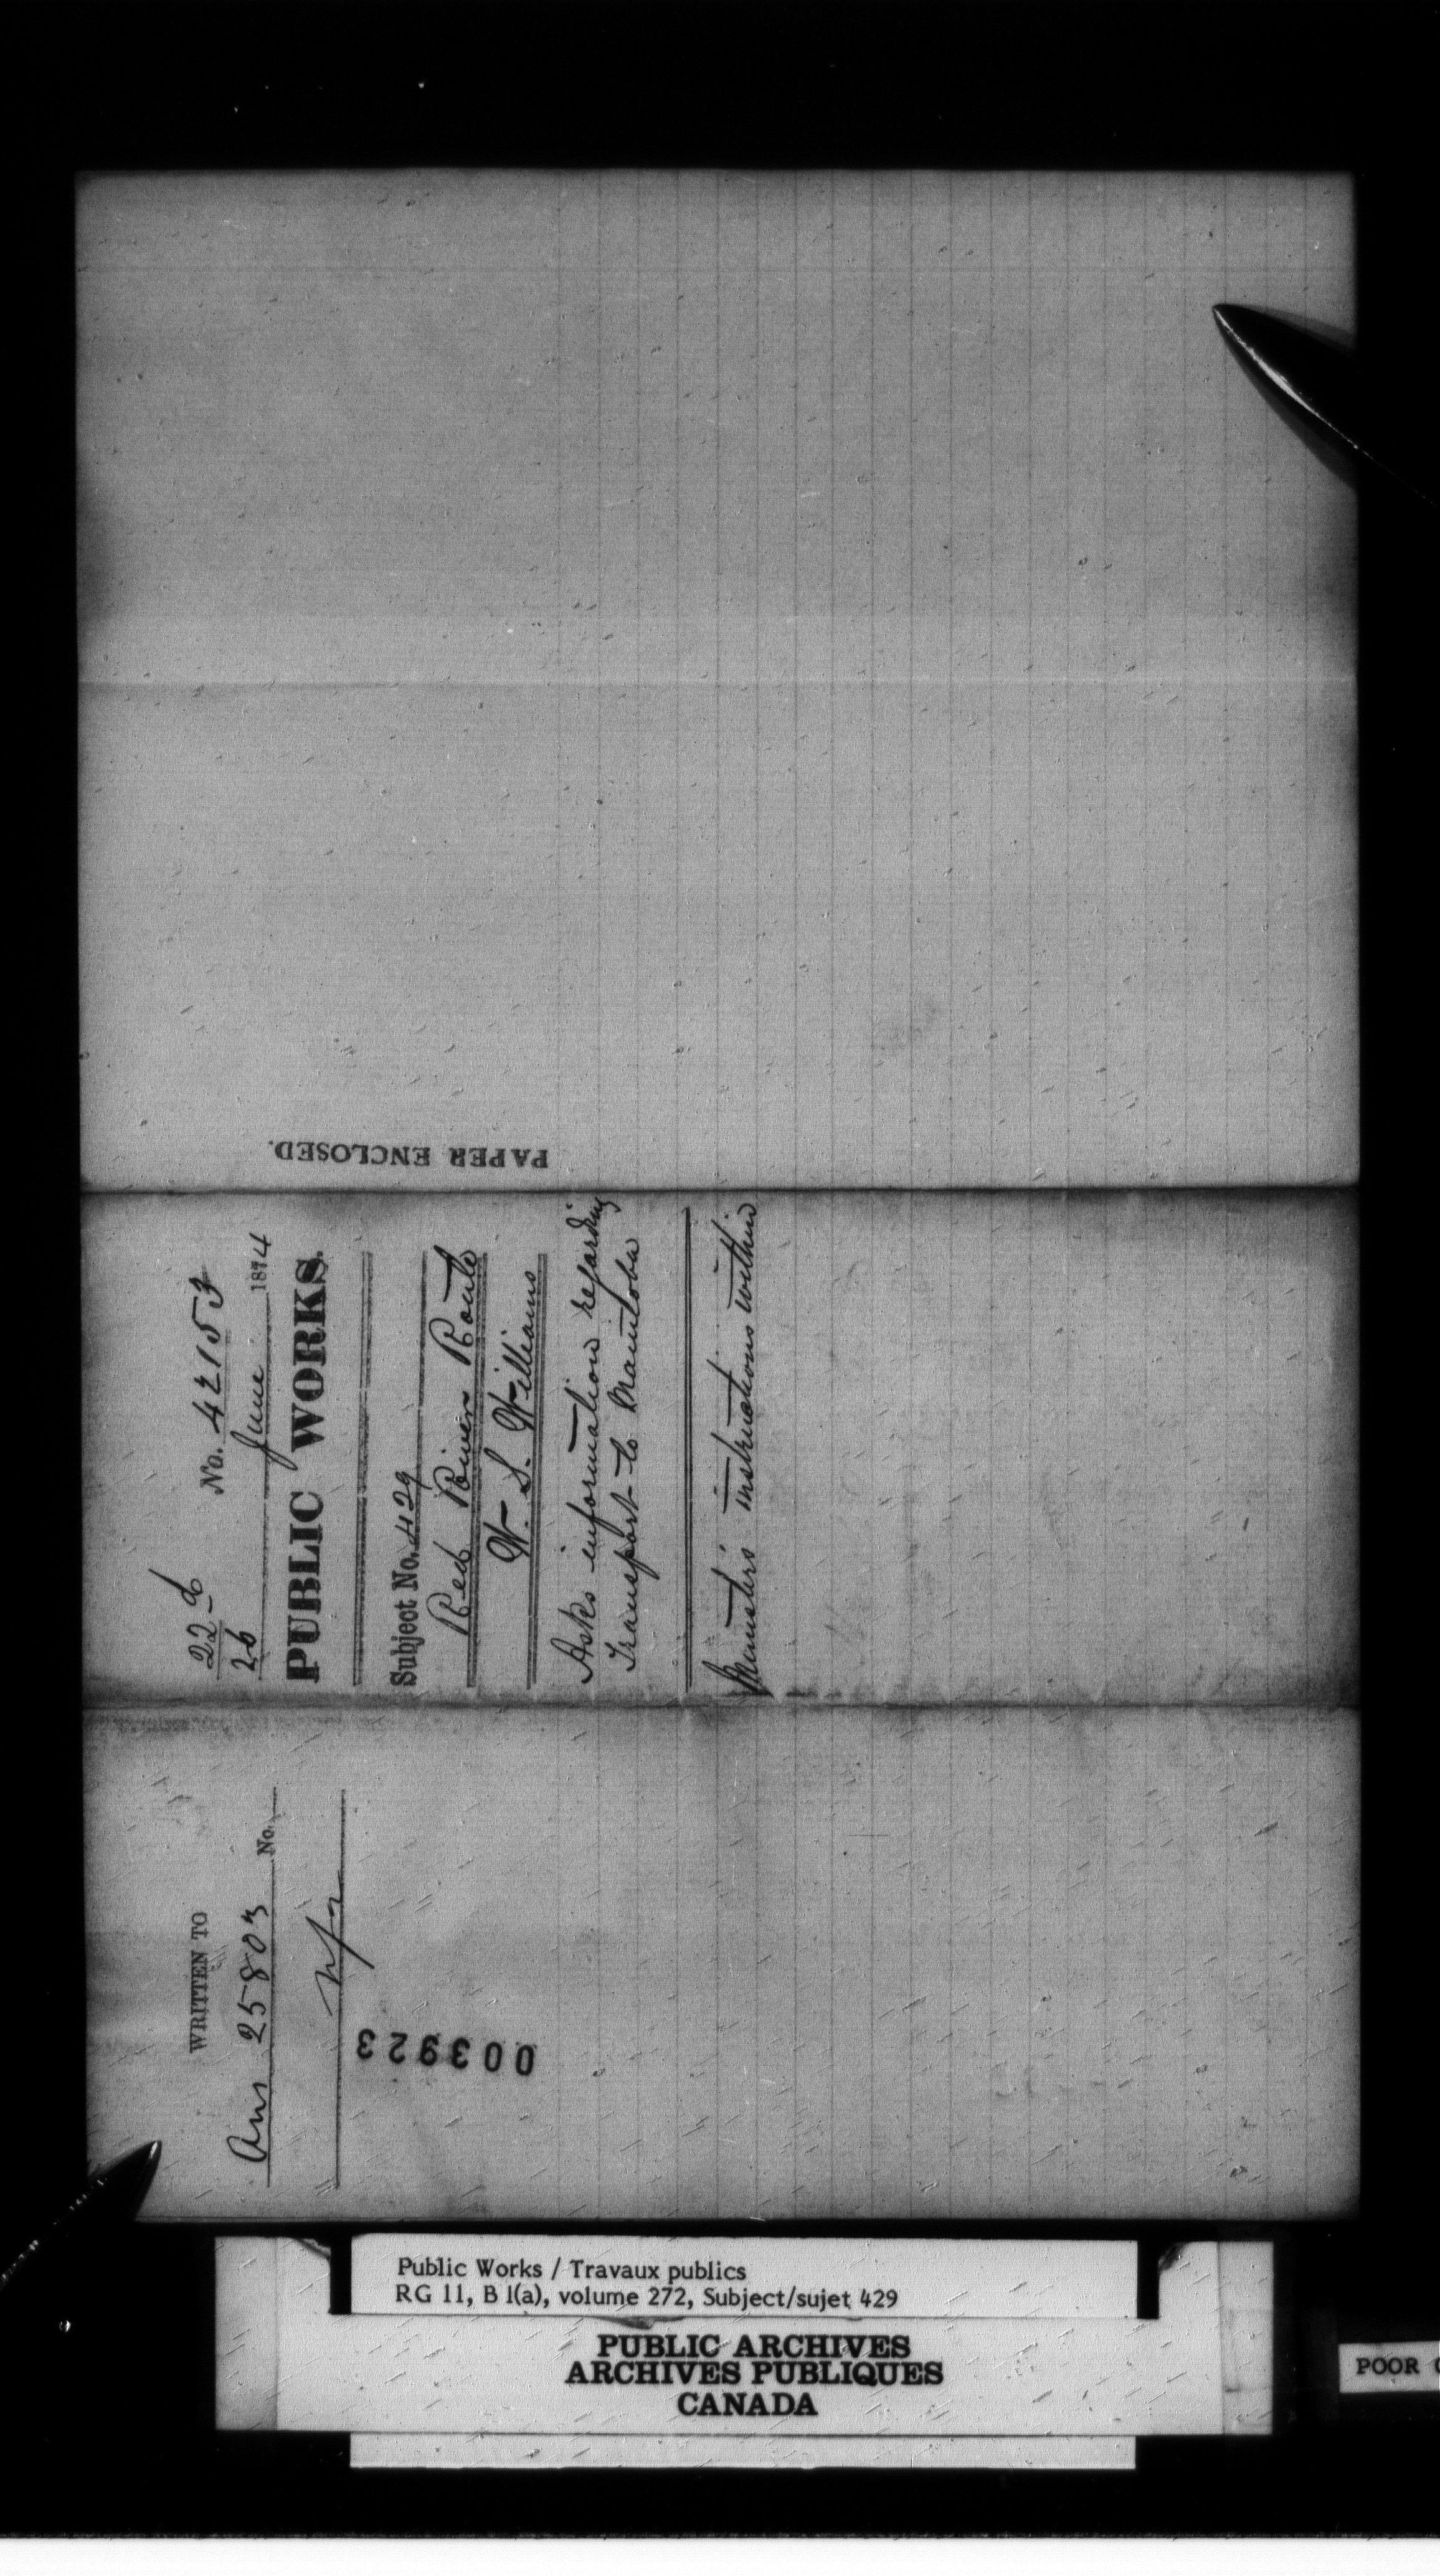 PAPER ENCLOSED.
22-d
No. 42153
26 June 1874
PUBLIC WORKS.
Subject No. 429
Red River Route
W. S. Williams
Asks information regarding
Transport to Manitoba
Ministers instructions within
WRITTEN TO
Ans 25803 No.
003923
Public Works / Travaux publics
RG 11, B 1(a), volume 272, Subject/sujet 429
PUBLIC ARCHIVES
ARCHIVES PUBLIQUES
CANADA
POOR